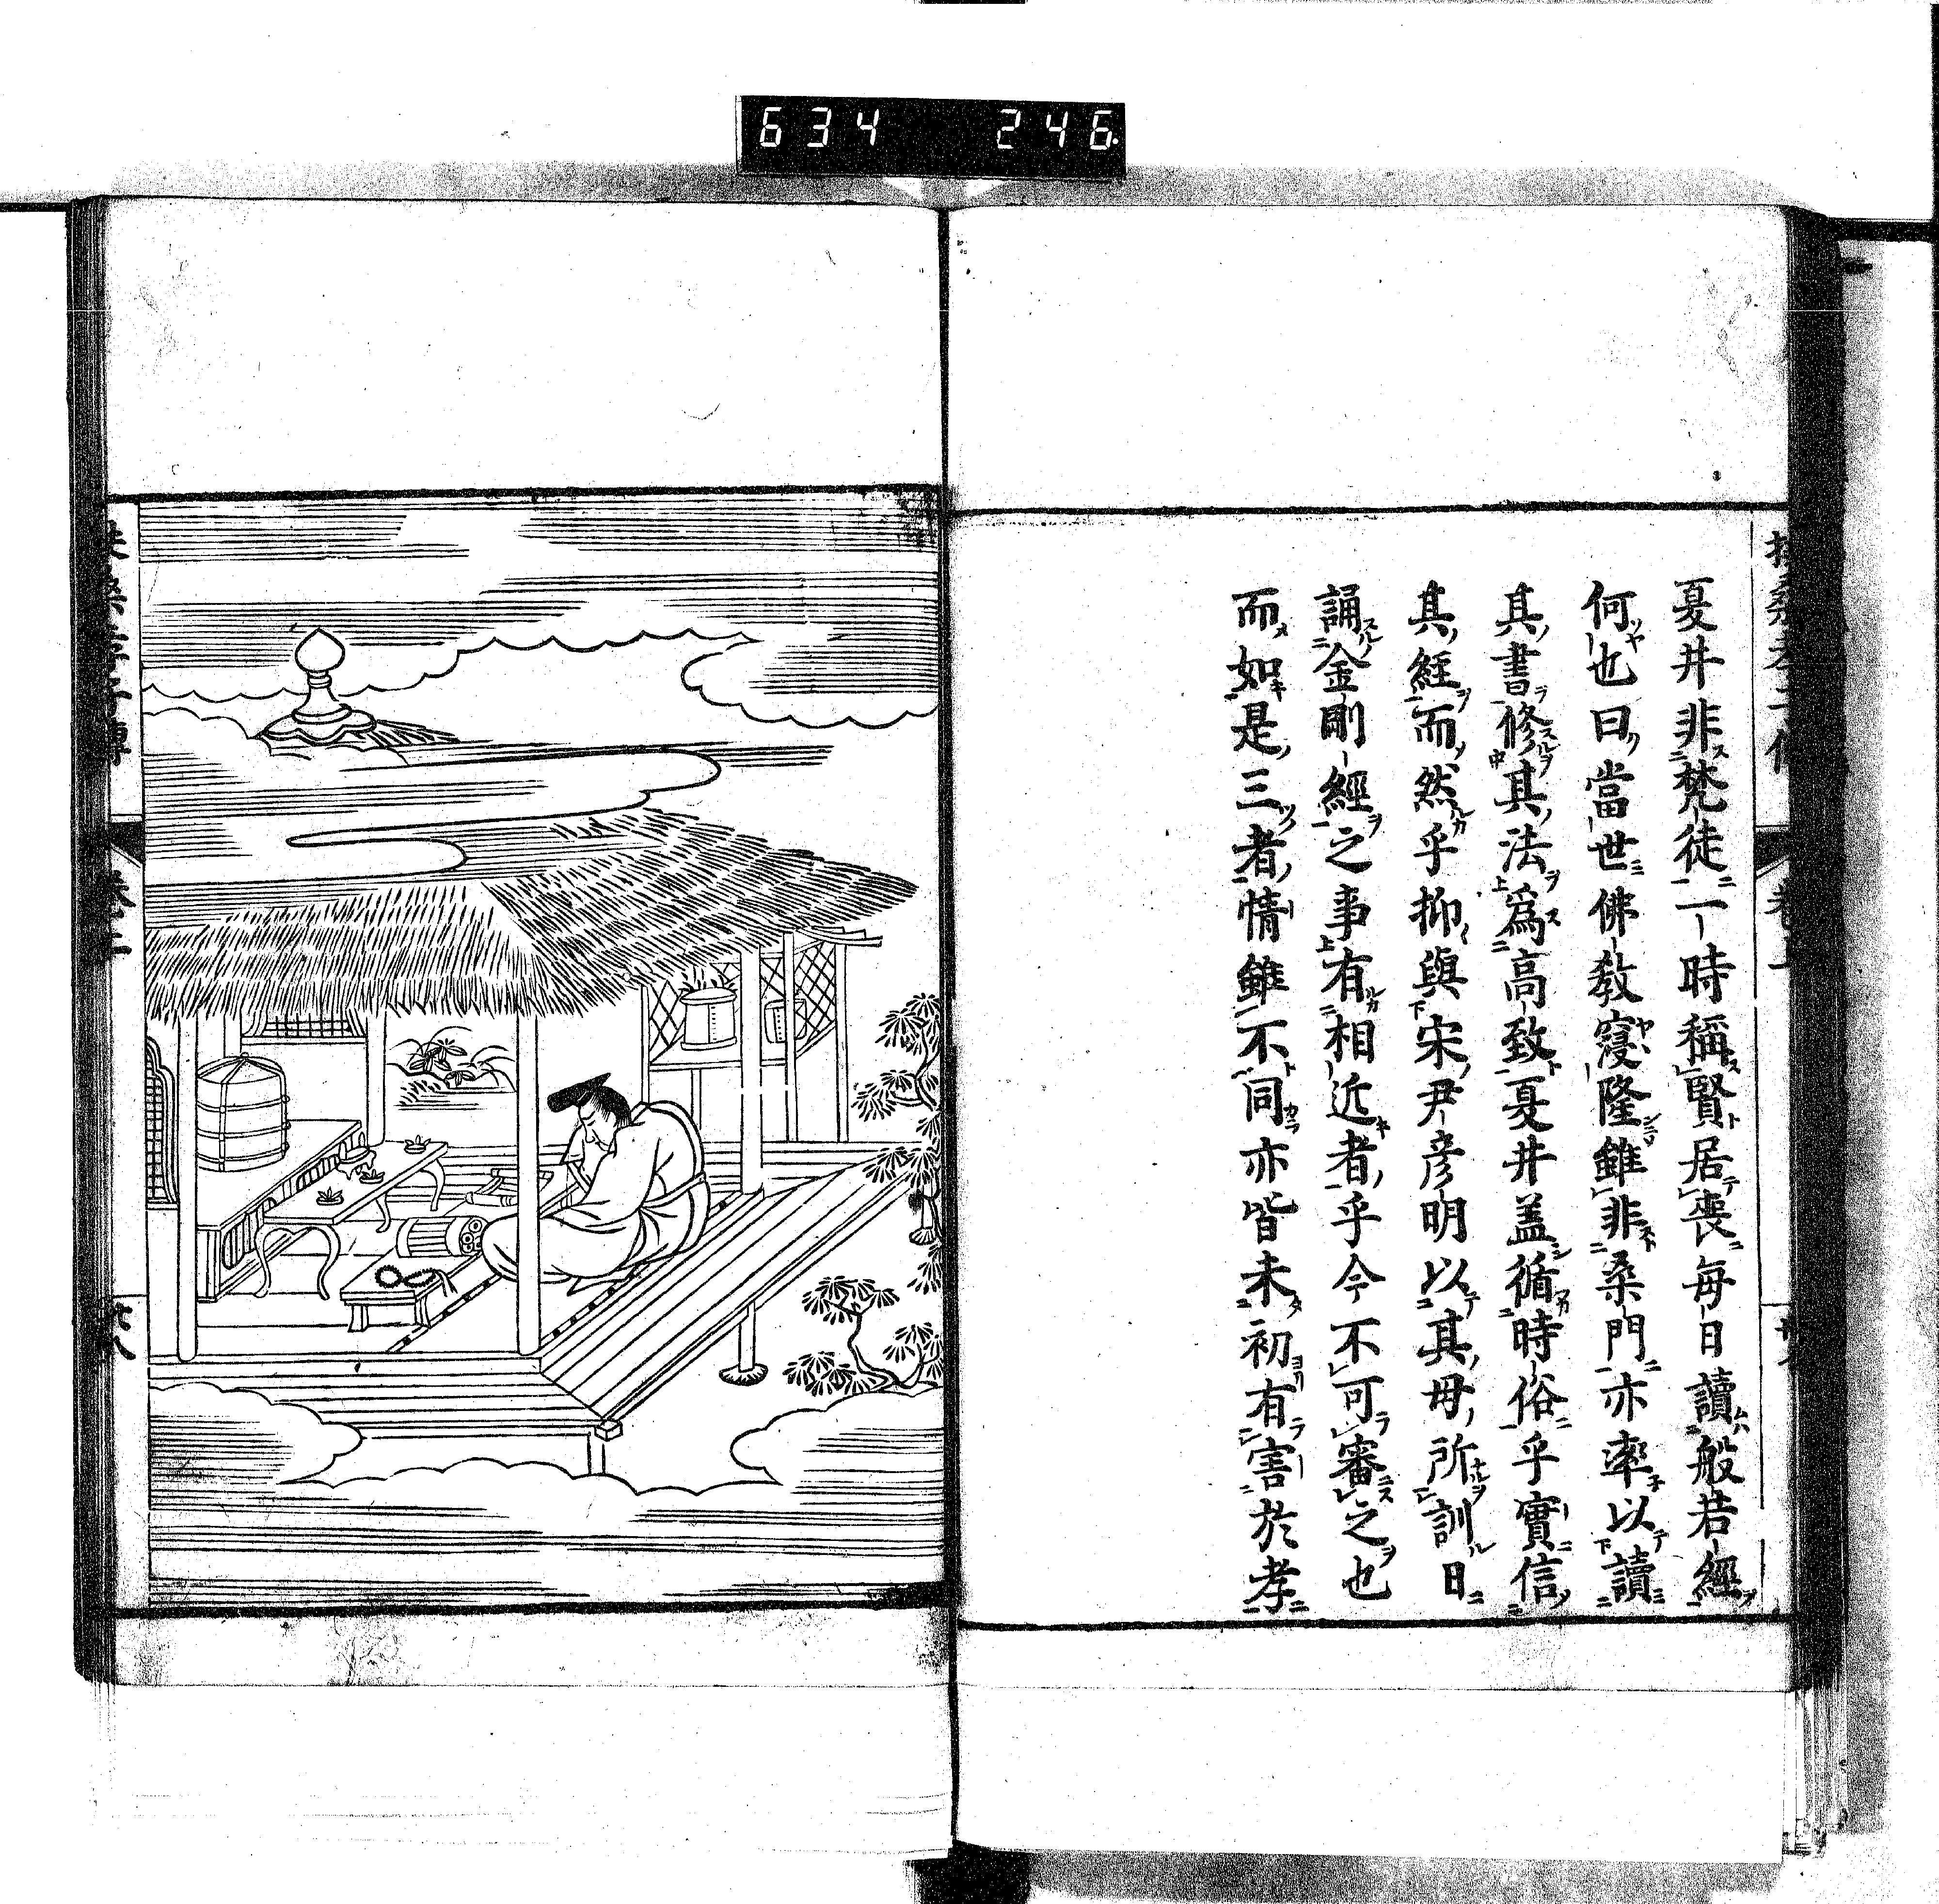 634 246
戞井非梵徒一時稱賢居喪每日讀般若經
何也曰當世佛教寖隆雖非桑門亦率以讀
其書修其法爲高致戞井盖循時俗乎實信
其經而然乎抑與宋尹彦明以其母所訓日
誦金剛經之事有相近者乎今不可審之也
而如是三者情雖不同亦皆未初有害於孝